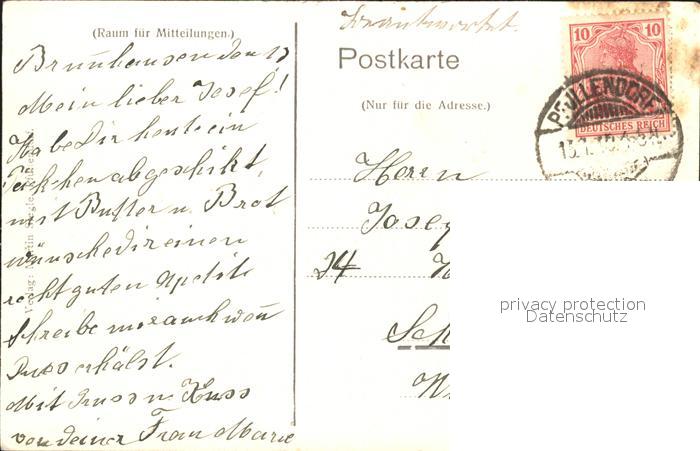 (Raum für Mitteilungen.)
Brunnhausen den 13
Mein lieber Josef!
Habe Dir heute ein
abgeschikt
mit Butter u. Brot
wünsche dir einen
recht guten Apetit
schreibe mir auch wen
Du es erhälst.
Mit Gruss u Kuss
von deiner Frau Marie
Verlag: Martin
Beantwortet.
Postkarte
(Nur für die Adresse.)
10 10
DEUTSCHES REICH
PFULLENDORF
Herrn
Josef
24
Sch
privacy protection
Datenschutz